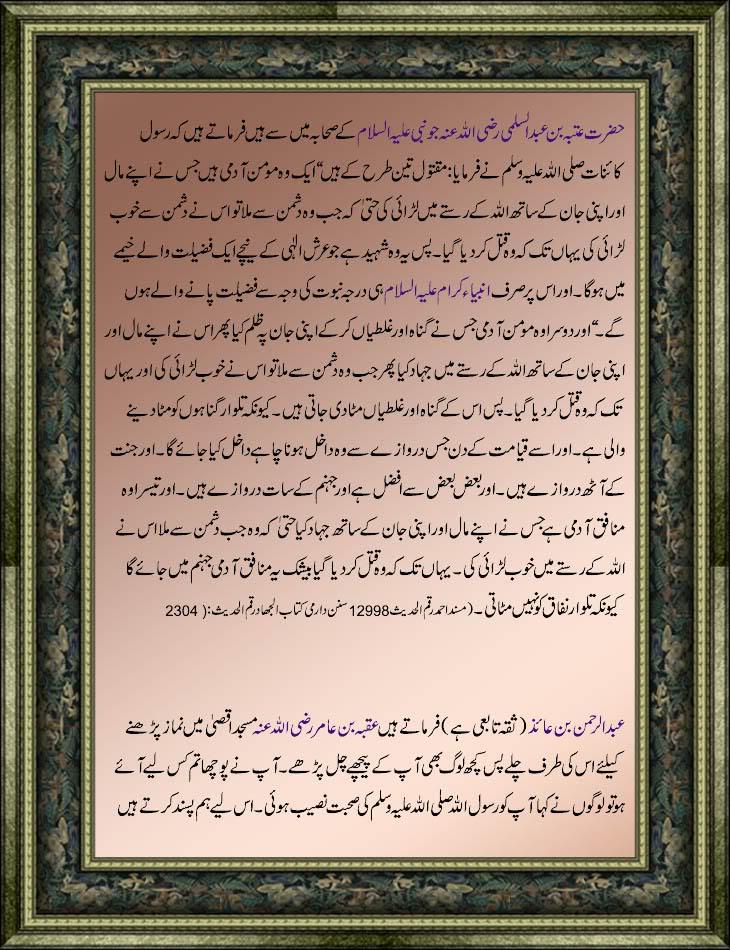 حضرت عتبہ بن عبدالسلمی رضی اللہ عنہ جو نبی علیہ السلام کے صحابہ میں سے ہیں فرماتے ہیں کہ رسول
کائنات صلی اللہ علیہ وسلم نے فرمایا: مقتول تین طرح کے ہیں“ ایک وہ مومن آدمی ہیں جس نے اپنے مال
اور اپنی جان کے ساتھ اللہ کے رستے میں لڑائی کی حتیٰ کہ جب وہ دشمن سے ملا تو اس نے دشمن سے خوب
لڑائی کی یہاں تک کہ وہ قتل کر دیا گیا۔ پس یہ وہ شہید ہے جو عرش الٰہی کے نیچے ایک فضیلت والے خیمے
میں ہوگا۔ اور اس پر صرف انبیاء کرام علیہ السلام ہی درجہ نبوت کی وجہ سے فضیلت پانے والے ہوں
گے۔“ اور دوسرا وہ مومن آدمی جس نے گناہ اور غلطیاں کر کے اپنی جان پہ ظلم کیا پھر اس نے اپنے مال اور
اپنی جان کے ساتھ اللہ کے رستے میں جہاد کیا پھر جب وہ دشمن سے ملا تو اس نے خوب لڑائی کی اور یہاں
تک کہ وہ قتل کر دیا گیا۔ پس اس کے گناہ اور غلطیاں مٹا دی جاتی ہیں۔ کیونکہ تلوار گناہوں کو مٹا دینے
والی ہے۔ اور اسے قیامت کے دن جس دروازے سے وہ داخل ہونا چاہے داخل کیا جائے گا۔ اور جنت
کے آٹھ دروازے ہیں۔ اور بعض بعض سے افضل ہے اور جہنم کے سات دروازے ہیں۔ اور تیسرا وہ
منافق آدمی ہے جس نے اپنے مال اور اپنی جان کے ساتھ جہاد کیا حتیٰ کہ وہ جب دشمن سے ملا اس نے
اللہ کے رستے میں خوب لڑائی کی۔ یہاں تک کہ وہ قتل کر دیا گیا بیشک یہ منافق آدمی جہنم میں جائے گا
کیونکہ تلوار نفاق کو نہیں مٹاتی۔ (مسند احمد رقم الحدیث 12998 سنن دارمی کتاب الجہاد رقم الحدیث: ( 2304
عبدالرحمن بن عائذ ( ثقہ تابعی ہے ) فرماتے ہیں عقبہ بن عامر رضی اللہ عنہ مسجد اقصیٰ میں نماز پڑھنے
کیلئے اس کی طرف چلے پس کچھ لوگ بھی آپ کے پیچھے چل پڑھے۔ آپ نے پوچھا تم کس لیے آئے
ہو تو لوگوں نے کہا آپ کو رسول اللہ صلی اللہ علیہ وسلم کی صحبت نصیب ہوئی۔ اس لیے ہم پسند کرتے ہیں